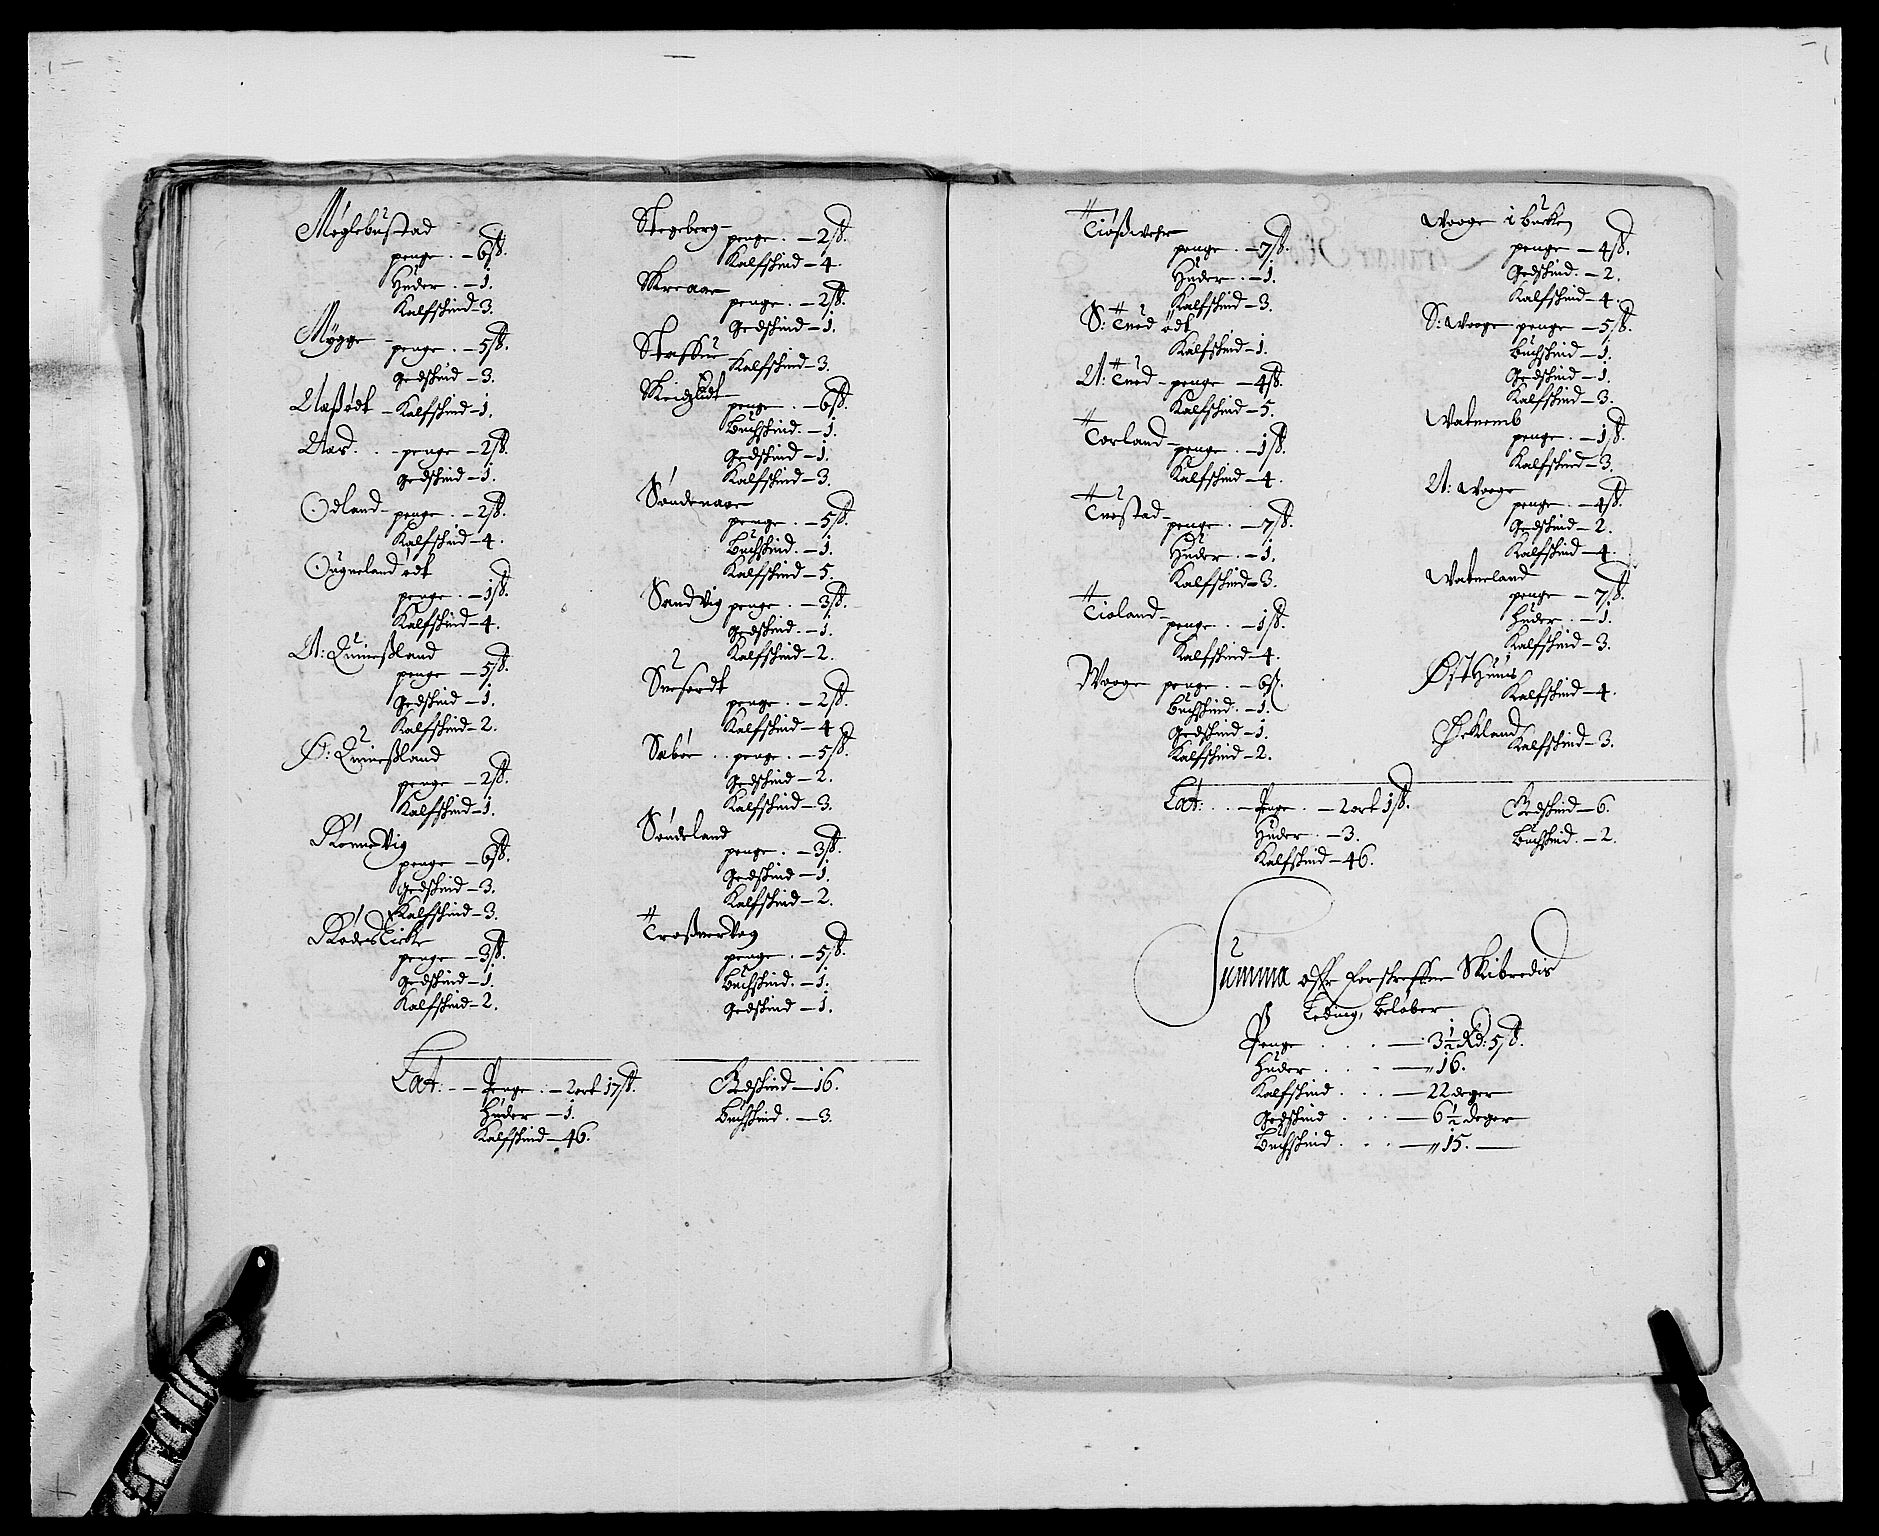 Møglebustad
penge . – 6 ß.
Huder . – 1.
Kalfskind – 3.
Mygge –
penge . – 5 ß.
gedskind – 3.
Naßødt – Kalfskind – 1.
Aas . . – penge – 2 ß.
gedskind – 1.
Odland –
penge . – 2 ß.
Kalfskind – 4.
Ougneland ødt
penge . – 1 ß.
Kalfskind – 4.
N: Quineßland
penge – 5 ß.
gedskind – 1.
Kalfskind – 2.
Ø: Quineßland
penge – 2 ß.
Kalfskind – 1.
Rønnevig
penge – 6 ß.
gedskind – 3.
Kalfskind – 3.
penge – 3 ß.
gedskind – 1.
Kalfskind – 2.
Lat: – – Penge . – 2 ort 17 ß.
Huder – 1.
Kalfskind – 46.
Stegeberg –
penge . – 2 ß.
Kalfskind – 4.
Skreaae
penge . – 2 ß.
gedskind – 1.
Kalfskind – 3.
penge . – 6 ß.
Buchskind . – 1.
gedskind – 1.
Kalfskind – 3.
Søndenaae
penge . – 5 ß.
Buchskind . – 1.
Kalfskind – 5.
Sandvig penge . – 3 ß.
gedskind . – 1.
Kalfskind – 2.
penge . – 2 ß.
Kalfskind – 4
Sabøe . . penge . – 5 ß.
gedskind – 2.
Kalfskind – 3.
Søndeland
penge . – 3 ß.
gedskind – 1.
Kalfskind – 2.
penge . – 5 ß.
Buchskind . – 1.
gedskind – 1.
Gedskind – 16.
Buchskind . – 3.
penge . – 7 ß.
Huder . – 1.
Kalfskind – 3.
S: Tued ødt
Kalfskind – 1.
N: Tued – penge – 4 ß.
Kalfskind – 5.
Torland –
penge . – 1 ß.
Kalfskind – 4.
Tuestad –
penge . – 7 ß.
Huder . – 1.
Kalfskind – 3.
Tioland –
penge . – 1 ß.
Kalfskind – 4.
Waage penge . – 6 ß.
Buchskind . – 1.
gedskind – 1.
Kalfskind – 2.
Lat: . . – Penge . – 2 ort 1 ß.
Huder . – 3.
Kalfskind – 46.
Waage i Bucken
penge – 4 ß.
Gedskind . – 2.
Kalfskind – 4.
S: Waage penge – 5 ß.
Buchskind – 1.
Gedskind – 1.
Kalfskind – 3.
Watnemb
penge . – 1 ß.
Kalfskind – 3.
N: Waage
penge . – 4 ß.
Gedskind – 2.
Kalfskind – 4.
Watneland
penge – 7 ß.
Huder . – 1.
Kalfskind – 3.
Øst Huus
Kalfskind – 4.
Ørkland
Kalfskind – 3.
Gedskind – 6.
Buchskind . – 2.
Summa offr Forskreffne Skibredis
Leding, Beløber
Penge . . . – 3 ½ Rd: 5 ß.
Huder . . . – „ 16.
Kalfskind . . . – 22 deger
Gedskind . . . – 6 ½ deger
Buchskind . . . – „ 15. –